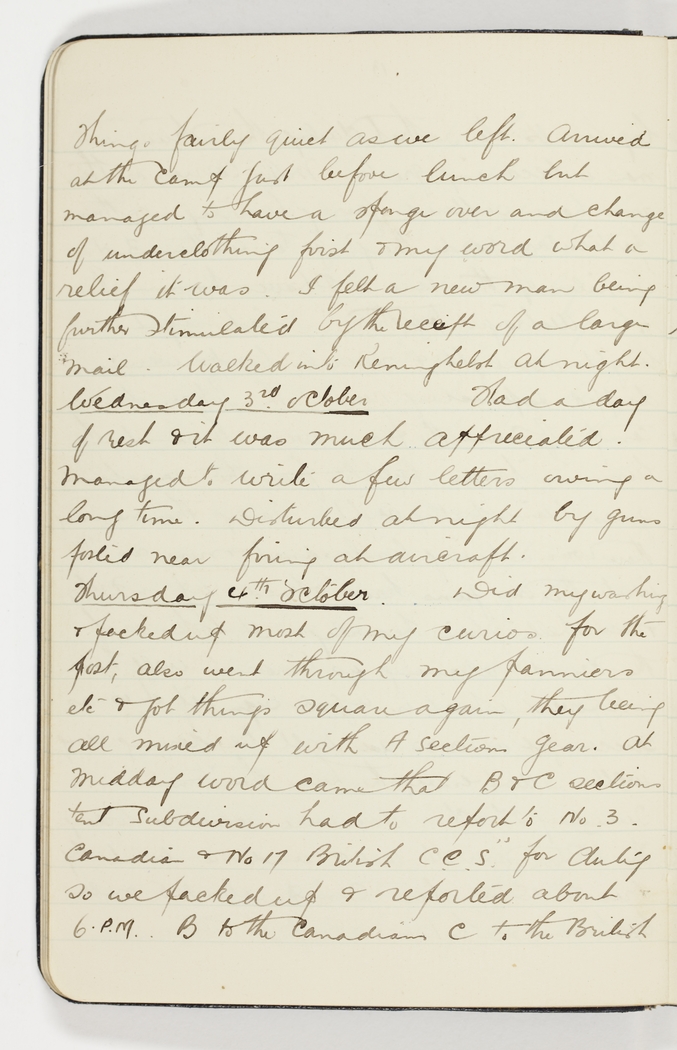 Things fairly quiet as we left. Arrived
at the camp just before lunch but
managed to have a sponge over and change
of underclothing first & my word what a
relief it was. I felt a new man being
further stimulated by the receipt of a large
mail. Walked into Reninghelst at night.
Wednesday 3rd October Had a day
of rest & it was much appreciated.
Managed to write a few letters owing a
long time. Disturbed at night by guns
posted near firing at aircraft.
Thursday 4th October. Did my washing
& packed up most of my curios for the
post, also went through my panniers
etc & got things square again, they being
all mixed up with A Sections gear. At
midday word came that B & C sections
tent subdivision had to report to No. 3.
Canadian & No 17 British C.C.S." for duty
so we packed up & reported about
6.P.M.. B to the Canadians C to the British